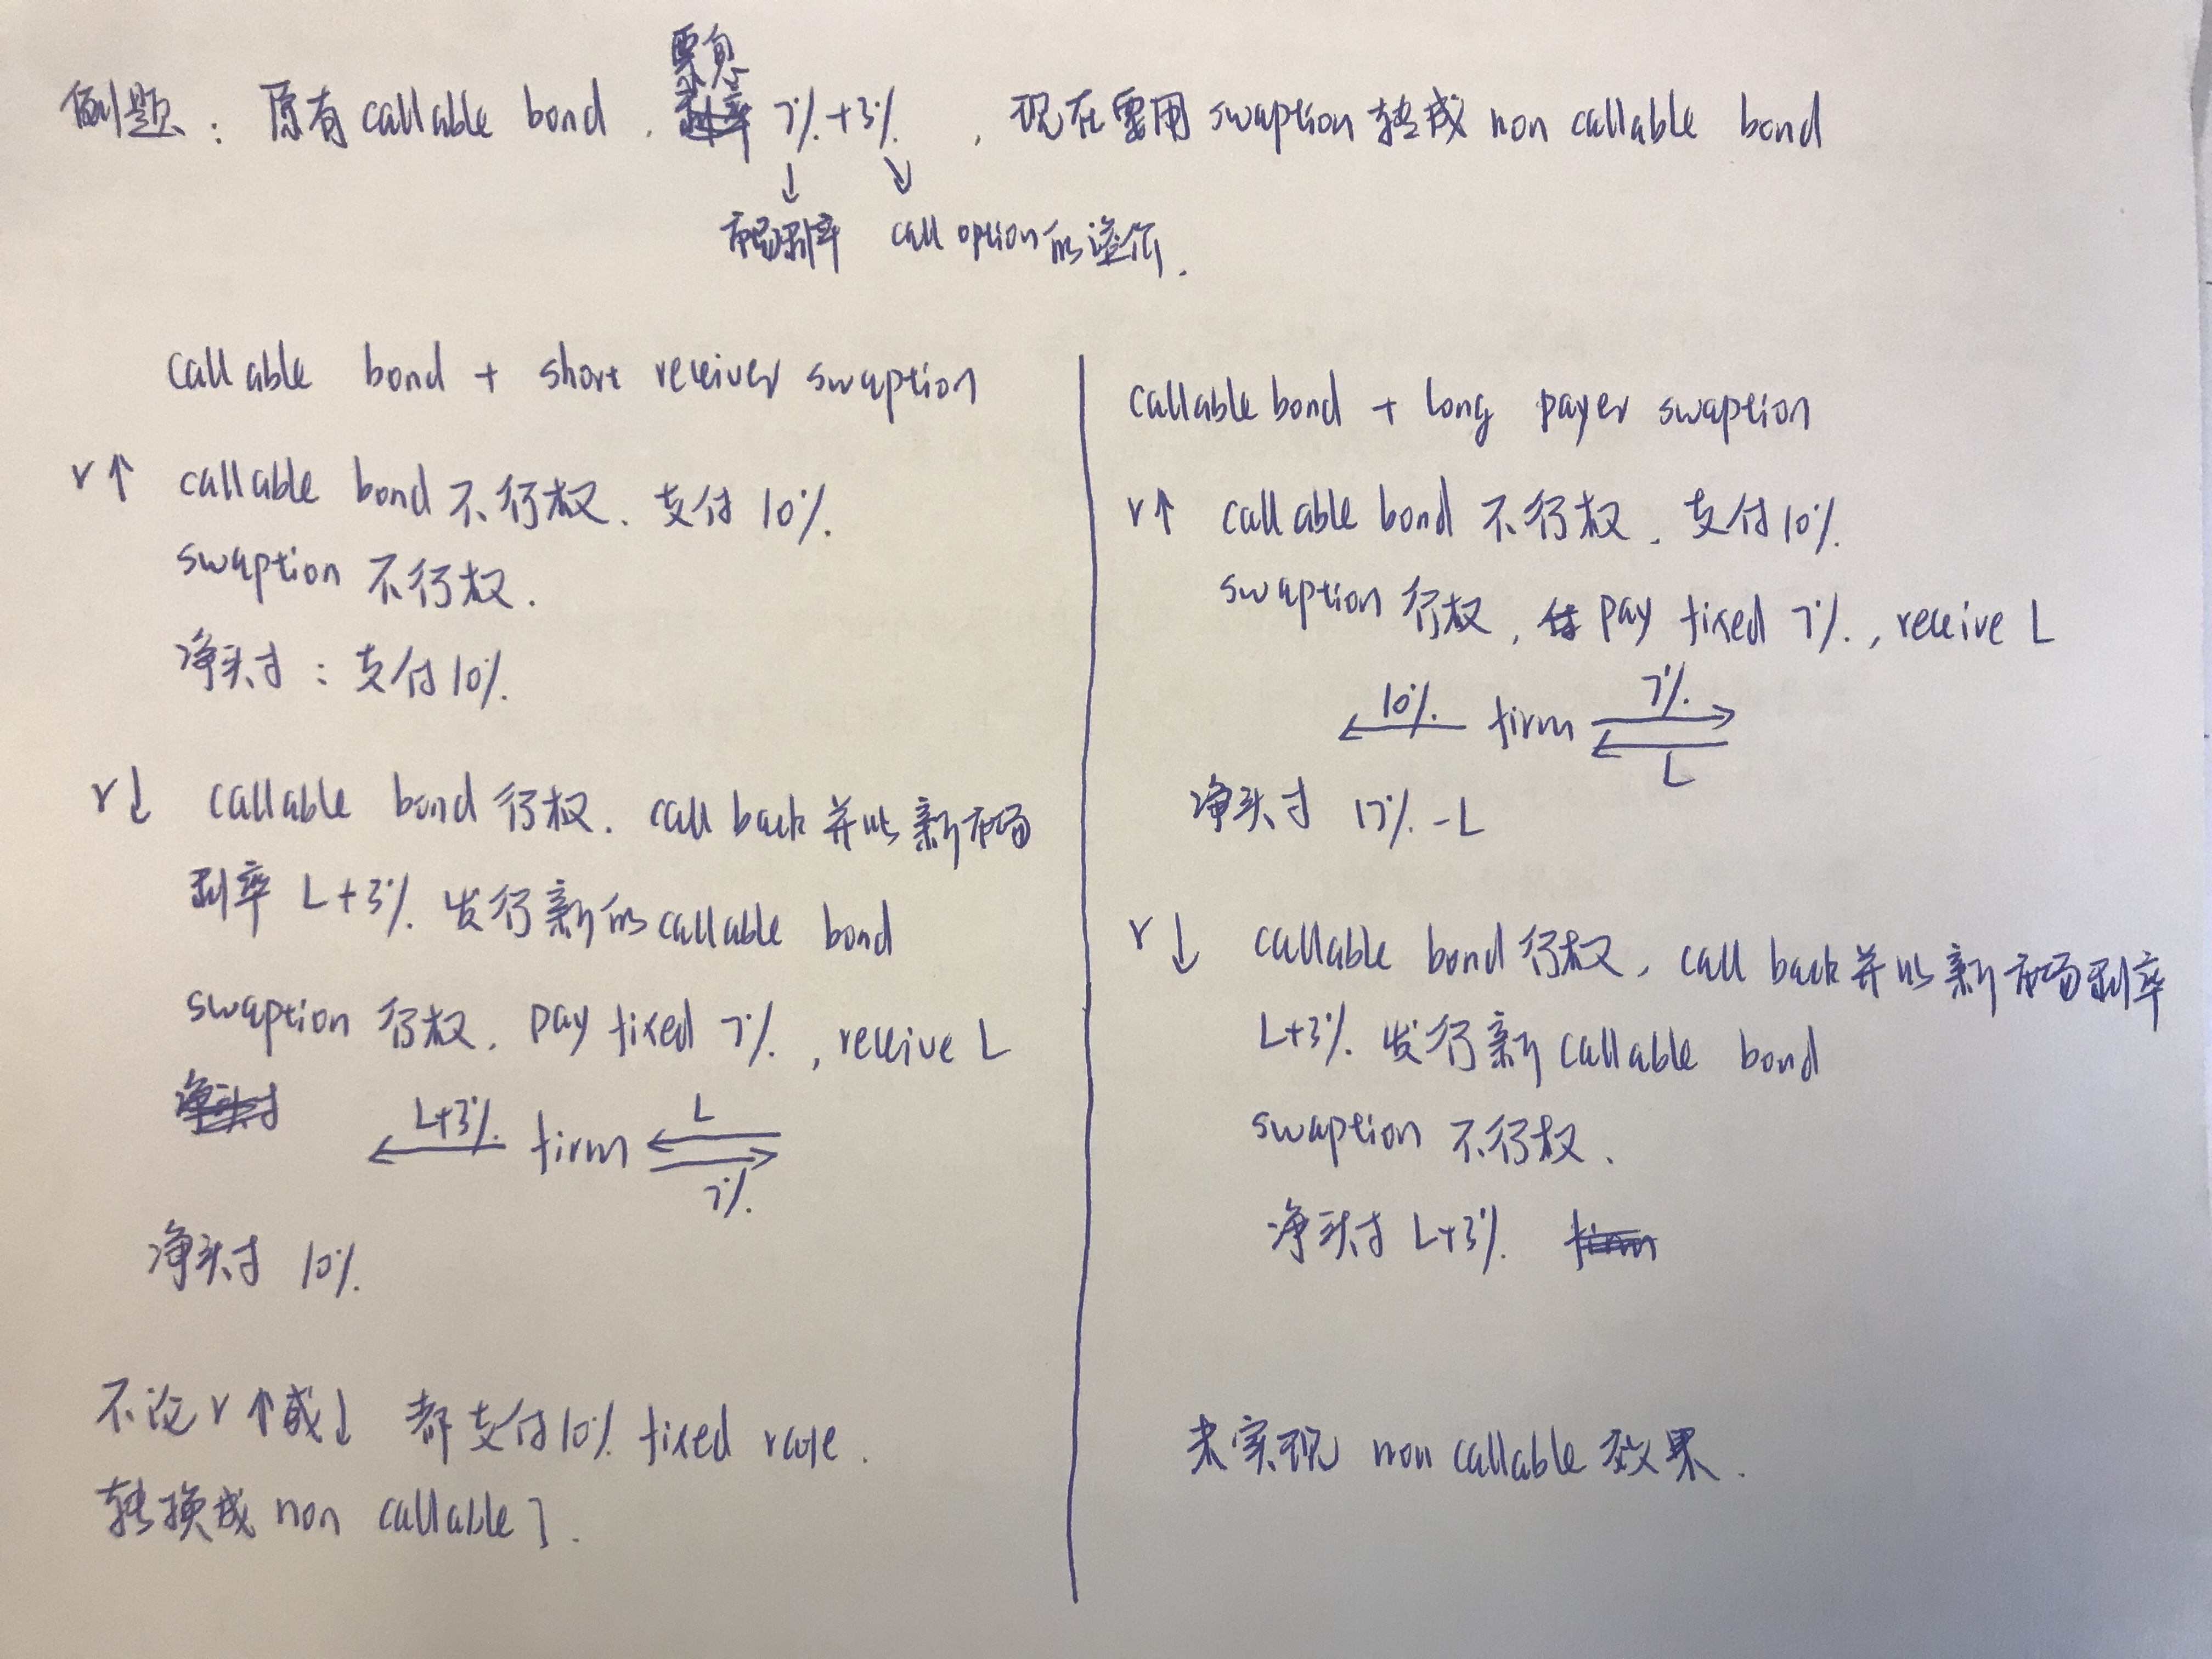 例题：原有 callable bond，票息 7%+3%，现在要用 swaption 转成 non callable bond
市场利率 call option 的溢价.
callable bond + short receiver swaption
r↑ callable bond 不行权、支付 10%.
swaption 不行权.
净头寸：支付 10%.
r↓ callable bond 行权. call back 并以新市场
利率 L+3% 发行新的 callable bond
swaption 行权. pay fixed 7%, receive L
L+3% firm L
7%.
净头寸 10%.
不论 r ↑ 或 ↓ 都支付 10% fixed rate.
转换成 non callable 了.
callable bond + long payer swaption
r↑ callable bond 不行权. 支付 10%.
swaption 行权, pay fixed 7%., receive L
10%. firm 7%.
L
净头寸 17%. - L
r↓ callable bond 行权, call back 并以新市场利率
L+3%. 发行新 callable bond
swaption 不行权.
净头寸 L+3%.
未实现 non callable 效果.